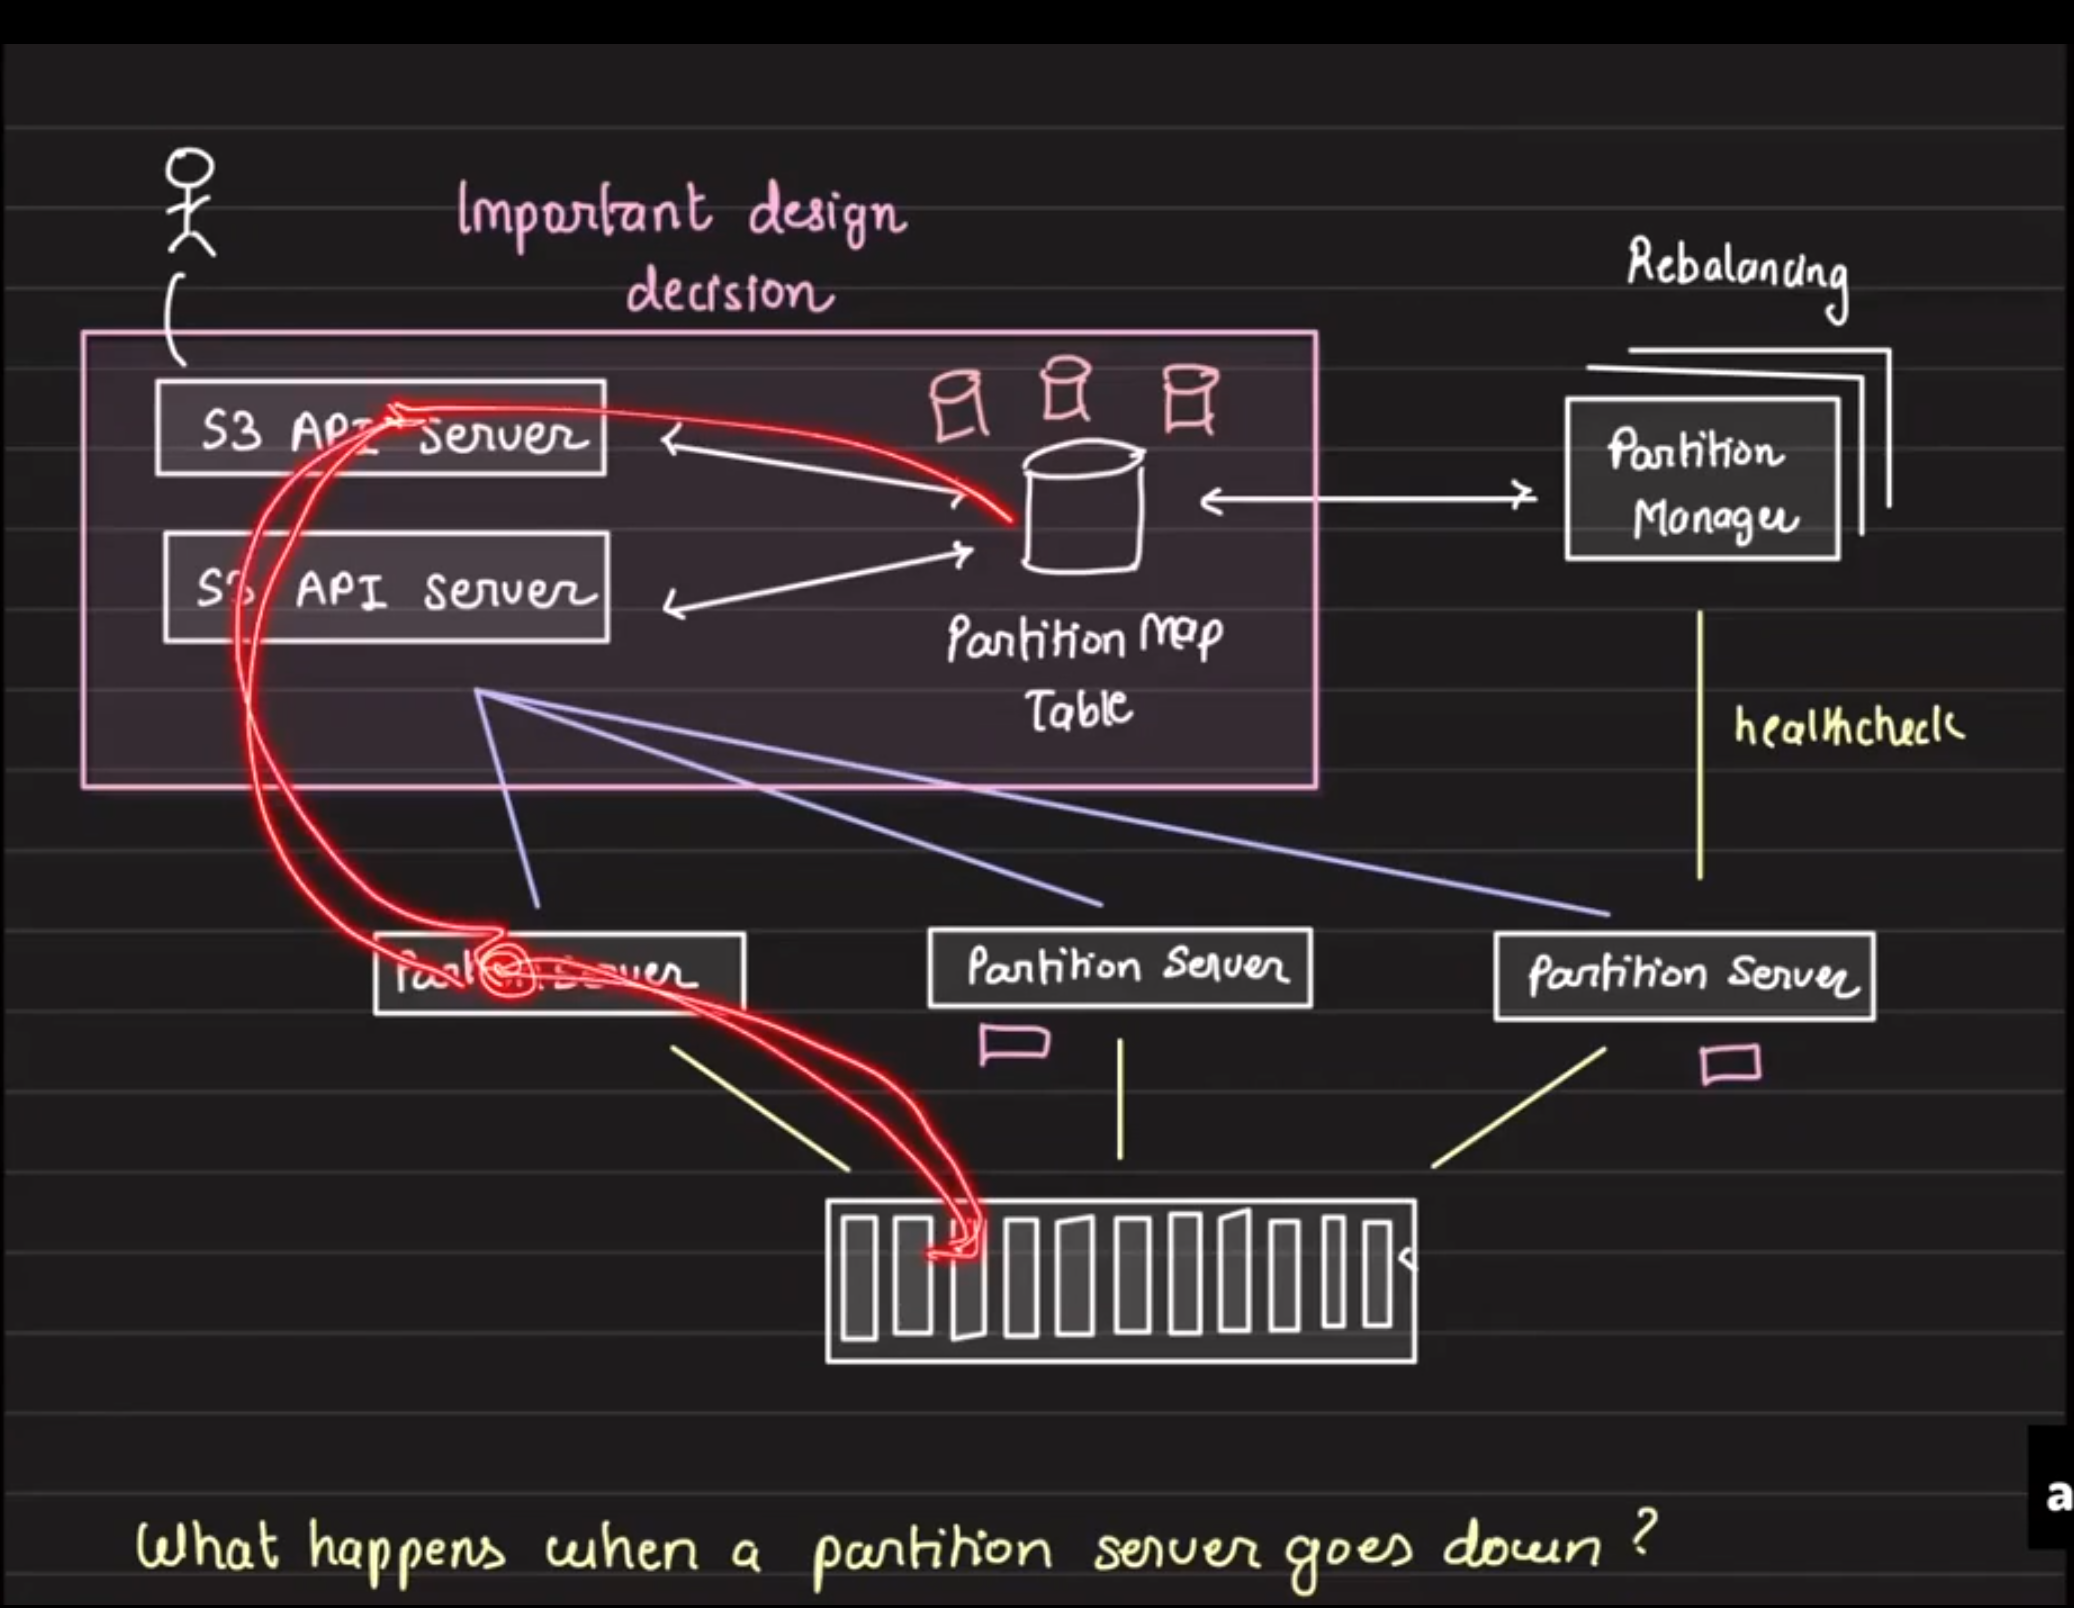 Important design
decision
Rebalancing
S3 API Server
Partition
Manager
S3 API Server
Partition Map
Table
healthcheck
Partition Server
Partition Server
Partition Server
What happens when a partition server goes down?
a